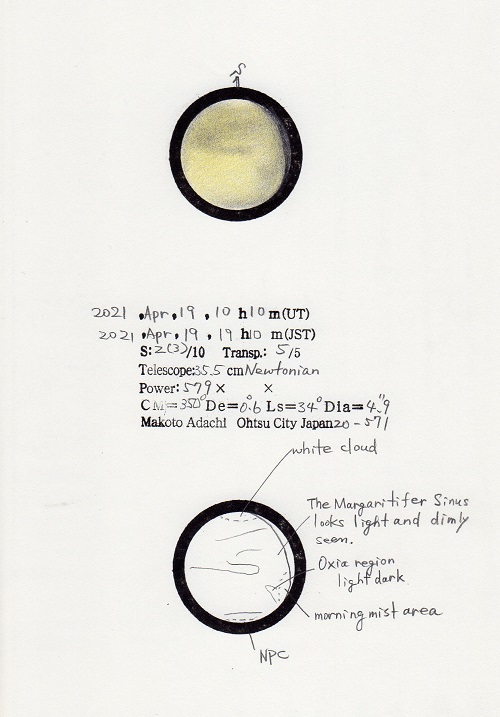 S
2021 ,Apr, 19 , 10 h10 m(UT)
2021 ,Apr, 19 , 19 h10 m(JST)
S:2(3)/10 Transp.: 5/5
Telescope:35.5 cm Newtonian
Power: 579 × ×
CM=350° De=0.6° Ls=34° Dia=4.″9
Makoto Adachi Ohtsu City Japan 20-571
white cloud
The Margaritifer Sinus
looks light and dimly
seen.
Oxia region
light dark
morning mist area
NPC